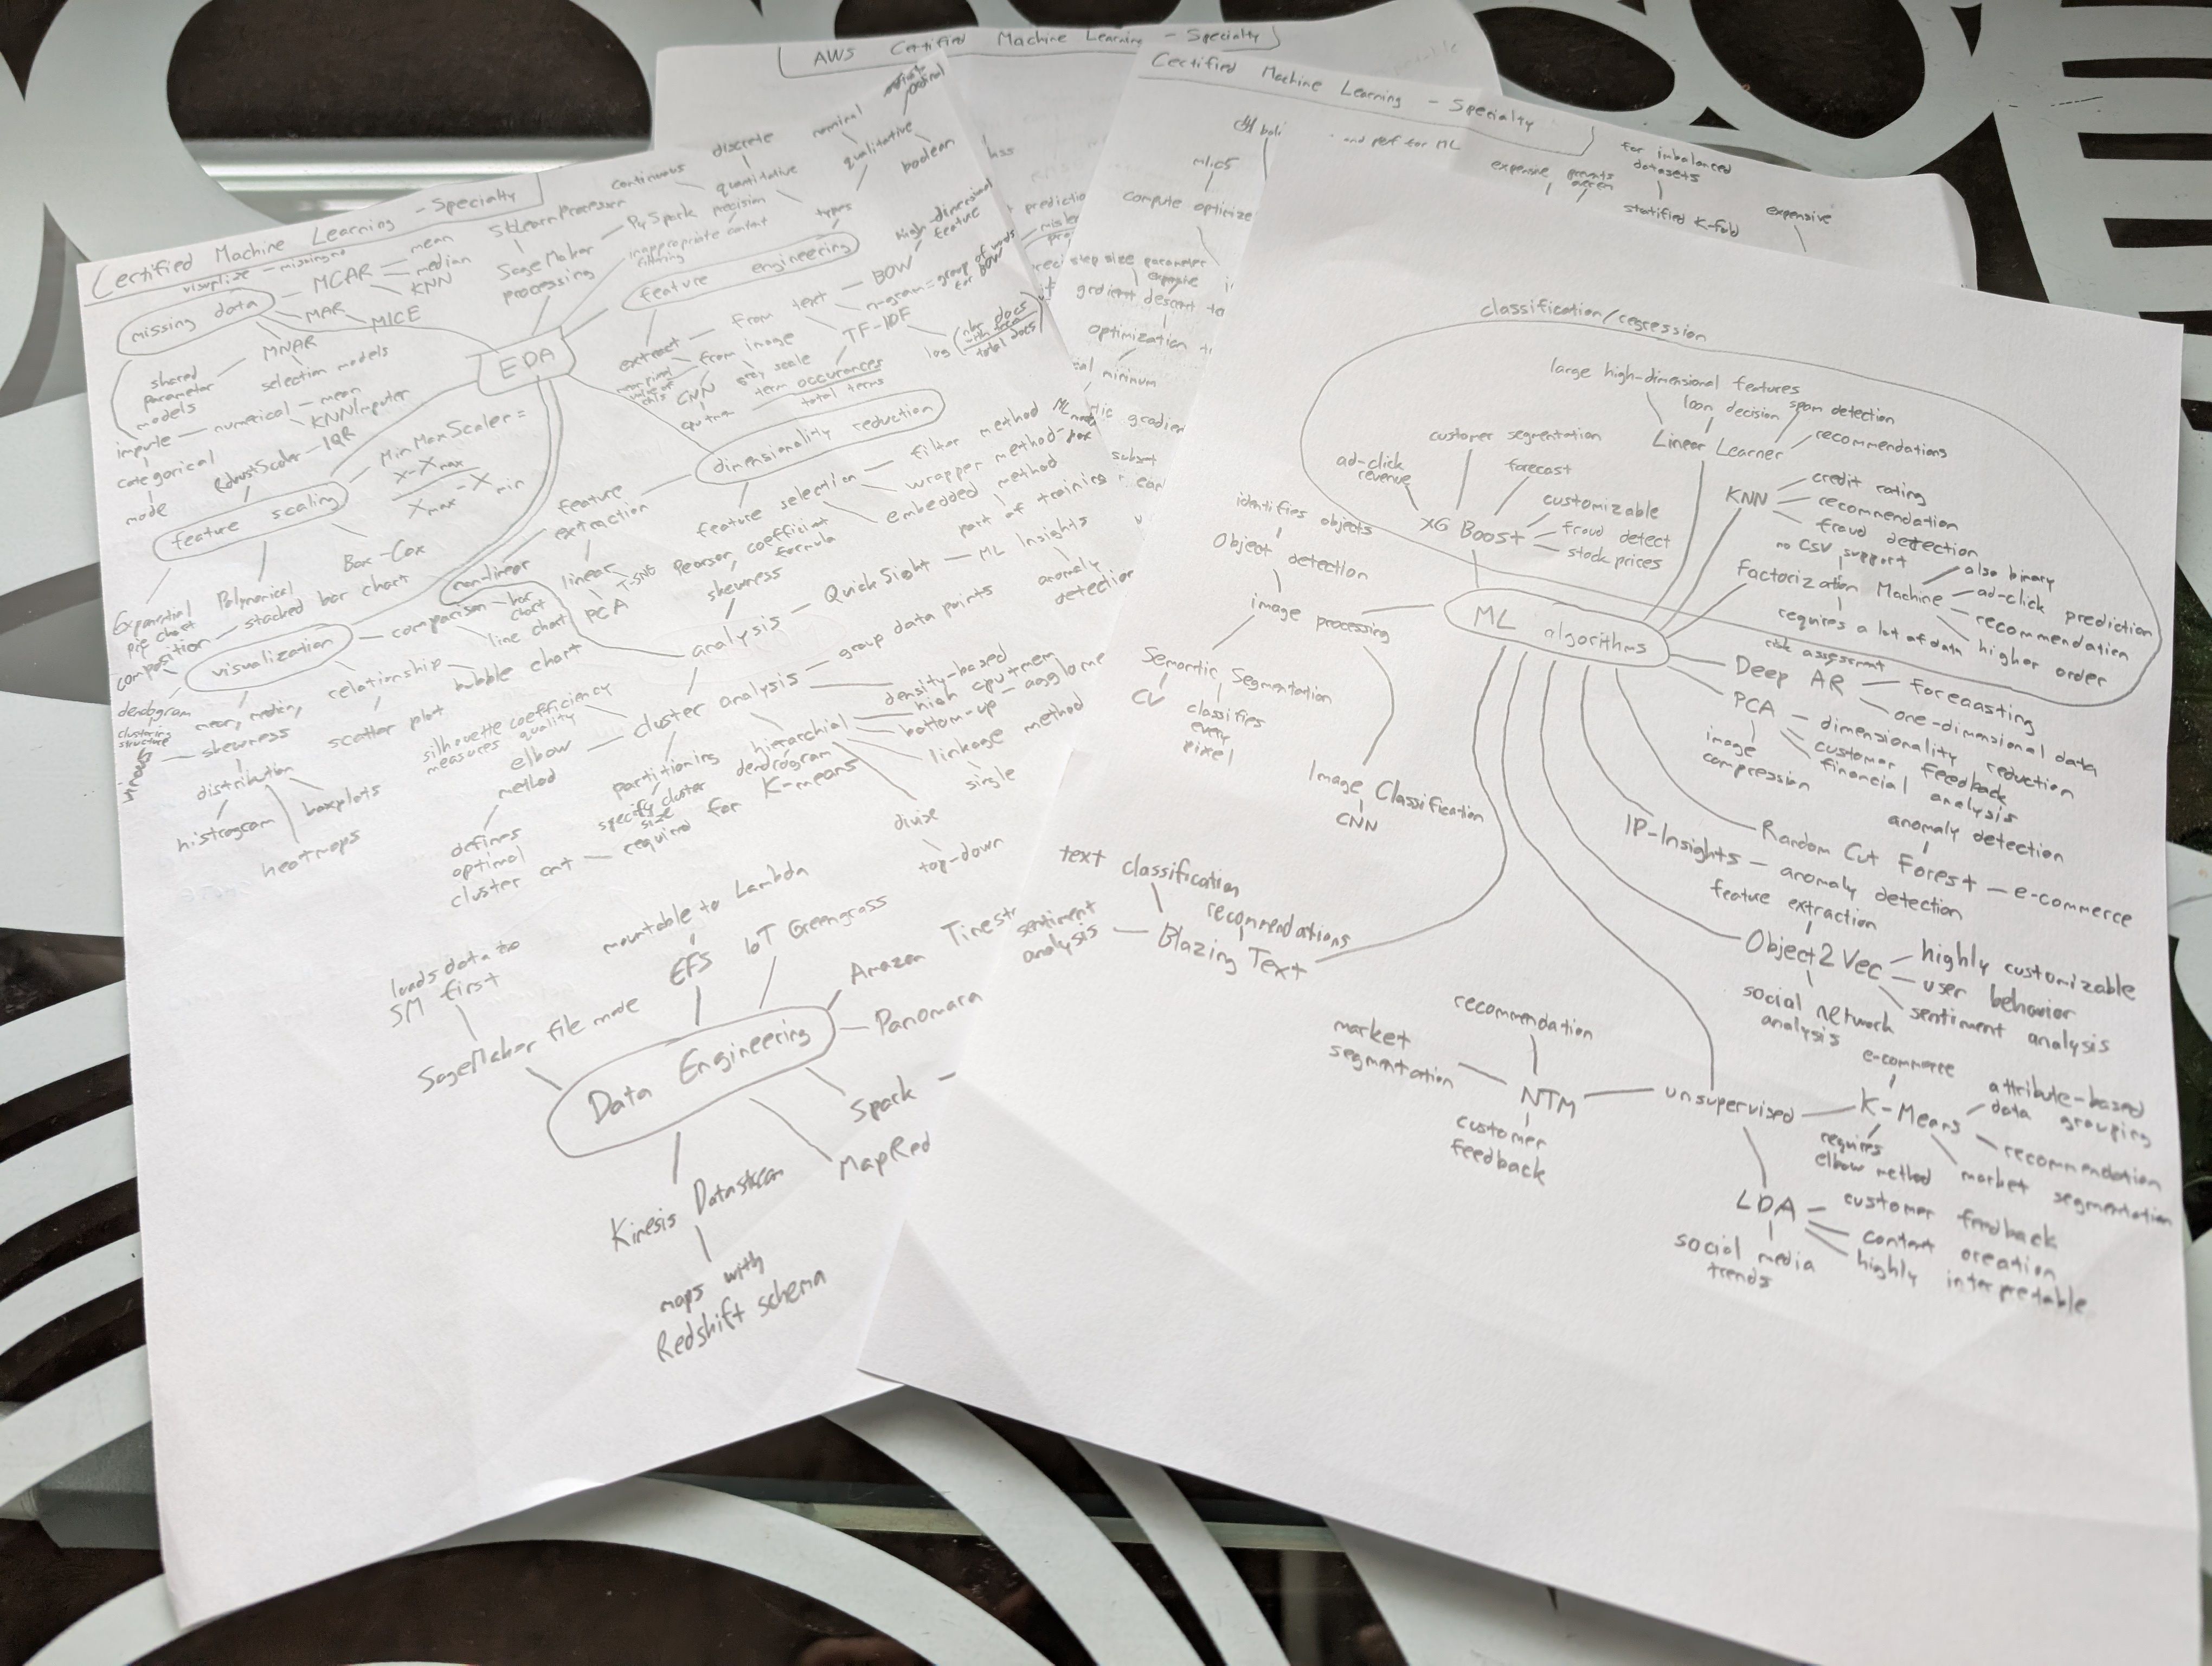 AWS Certified Machine Learning - Specialty
Certified Machine Learning - Specialty
and perf for ML
expensive
for imbalanced
datasets
stratified K-fold
expensive
compute optimize
step size parameter
gradient descent
optimization
minimum
Certified Machine Learning - Specialty
visualize - missingno
missing data
MCAR
mean
median
KNN
MAR
MICE
MNAR
shared
parameter
models
selection models
impute - numerical - mean
KNNImputer
categorical
mode
RobustScaler - IQR
feature scaling
MinMaxScaler =
X-Xmax
Xmax - Xmin
Box-Cox
Exponential
Polynomial
SKLearnProcessor
SageMaker
processing
PySpark
EDA
continuous
discrete
quantitative
precision
inappropriate content
filtering
nominal
qualitative
boolean
types
feature engineering
extract
from text
BOW
high-dimensional
feature
n-gram = group of words
for BOW
from image
gray scale
CNN
TF-IDF
term occurances
total terms
log
total docs
dimensionality reduction
feature
extraction
linear
non-linear
T-SNE
PCA
feature selection
filter method
wrapper method
embedded method
part of training
Pearson coefficient
formula
skewness
analysis - QuickSight - ML Insights
anomaly
detection
pie chart
composition
stacked bar chart
visualization
comparison - bar
chart
line chart
relationship
bubble chart
scatter plot
dendogram
clustering
structure
mean, median,
skewness
distribution
histrogram
boxplots
heatmaps
cluster analysis
group data points
silhouette coefficiency
measures quality
elbow
method
defines
optimal
cluster cnt - required for K-means
partitioning
specify cluster
size
hierarchial
dendrogram
density-based
high cpu+mem
bottom-up - agglome
linkage method
single
divise
top-down
loads data to
SM first
SageMaker file mode
mountable to Lambda
EFS
IoT Greengrass
Amazon Timestr
Panomara
Data Engineering
Spark -
MapRed
Kinesis Datastream
maps with
Redshift schema
classification/regression
large high-dimensional features
loan decision
spam detection
recommendations
Linear Learner
customer segmentation
ad-click
revenue
forecast
customizable
fraud detect
stock prices
XG Boost
KNN
credit rating
recommendation
fraud detection
no CSV support
Factorization Machine
also binary
ad-click prediction
recommendation
higher order
requires a lot of data
ML algorithms
identifies objects
Object detection
image processing
Semantic Segmentation
CV
classifies
every
pixel
Image Classification
CNN
risk assessment
Deep AR
forecasting
one-dimensional data
PCA
dimensionality reduction
customer feedback
financial analysis
image
compression
anomaly detection
Random Cut Forest - e-commerce
IP-Insights - anomaly detection
feature extraction
Object2Vec
highly customizable
user behavior
sentiment analysis
social network
analysis
text classification
recommendations
sentiment
analysis
Blazing Text
recommendation
market
segmentation
NTM
customer
feedback
unsupervised
e-commerce
K-Means
attribute-based
data grouping
recommendation
market segmentation
requires
elbow method
LDA
customer feedback
content creation
highly interpretable
social media
trends